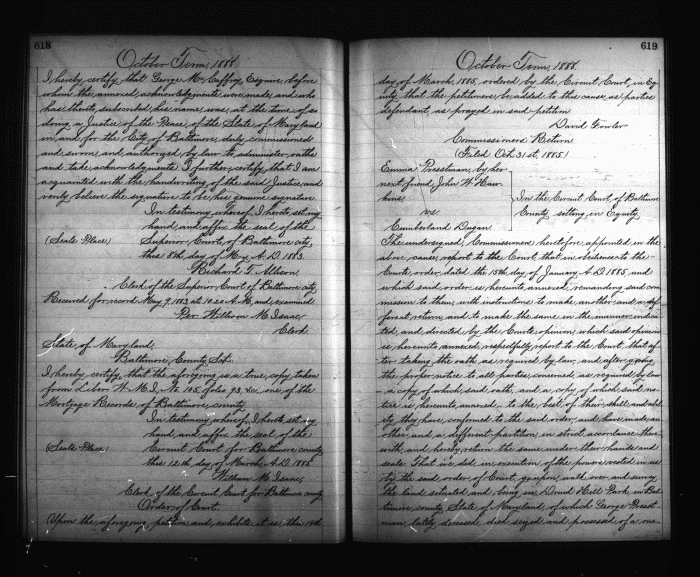 618
October Term, 1888.
I hereby certify, that George McCaffray, Esquire, before
whom the annexed acknowledgments were made, and who
has thereto subscribed his name, was, at the time of so
doing, a Justice of the Peace, of the State of Maryland
in and for the City of Baltimore, duly commissioned
and sworn, and authorized by law to administer oaths
and take acknowledgments. I further certify, that I am
acquainted with the handwriting of the said Justice, and
verily believe the signature to be his genuine signature
In testimony whereof, I hereto set my
hand, and affix the seal of the
(Seals Place) Superior Court, of Baltimore city,
this 8th day of May A.D. 1883.
Richard T. Allison
Clerk of the Superior Court of Baltimore city
Received for record May 9, 1883 at 10.20 A.M. and, examined
Per William M. Isaac,
Clerk
State of Maryland,
Baltimore County, Sct:
I hereby certify, that the aforegoing is a true copy, taken
from Liber W. M. I. No 105 folio 93 &c, one of the
Mortgage Records, of Baltimore, county
In testimony whereof, I hereto set my
hand, and affix the seal of the
(Seals Place) Circuit Court for Baltimore county
this 12th day of March, A.D. 1885
William M. Isaac,
Clerk of the Circuit Court for Baltimore county
Order of Court.
Upon the aforegoing petition, and exhibits, it is, this 14th
619
October Term, 1888.
day of March, 1885, ordered by the Circuit Court, in Eq-
uity, that the petitioners, be added to this cause, as parties
defendant, as prayed in said petition
David Fowler
Commissioners Return
(Filed Oct. 31st 1885)
Emma Presstman, by her
next friend, John W. Haw-
kins
vs
Cumberland Dugan
In the Circuit Court of Baltimore
County, sitting in Equity,
The undersigned, Commissioners, heretofore appointed in the
above cause, report to the Court, that in obedience to the
Courts order, dated the 15th day of January A.D. 1885, and
which said order is hereunto annexed, remanding said com-
mission to them, with instructions to make another and a dif-
ferent return, and to make the same in the manner indica-
ted, and directed by the Courts opinion, which said opinion
is hereunto annexed, respectfully report to the Court, that af-
ter taking the oath as required by law, and after giving
the proper notice to all parties concerned, as required by law
a copy of which, said oath, and a copy of which said no-
tice is hereunto, annexed, to the best of their skill and abil-
ity they have conformed to the said order, and have made an-
other and a different partition, in strict accordance there-
with, and hereby return the same under their hands and
seals That we did in execution of the powers vested in us
by the said order, of Court, go upon, walk over and survey
the land situated, and being in Druid Hill Park in Bal-
timore, county State of Maryland, of which George Presst-
man, lately deceased, died seized and possessed of a one-